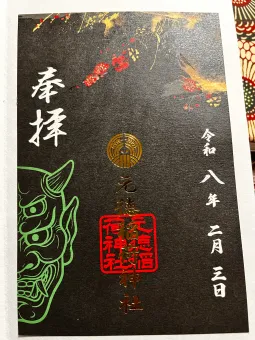 令和八年二月三日
元徳稲荷神社
元徳稲
荷神社
奉拝